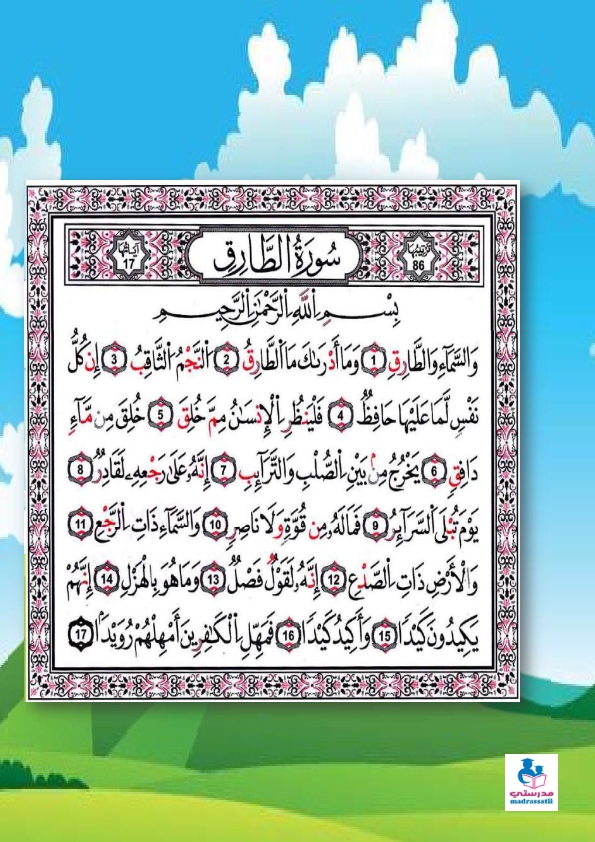 ترتيبها 86 سُورَةُ الطَّارِقِ آياتها 17
بِسْمِ اِ۬للَّهِ اِ۬لرَّحْمَٰنِ اِ۬لرَّحِيمِ
وَالسَّمَآءِ وَالطَّارِقِ 1 وَمَآ أَدْرَىٰكَ مَا اَ۬لطَّارِقُ 2 اُ۬لنَّجْمُ اُ۬لثَّاقِبُ 3 إِن كُلُّ
نَفْسٍ لَّمَا عَلَيْهَا حَافِظٌ 4 فَلْيَنظُرِ اِ۬لْإِنسَٰنُ مِمَّ خُلِقَ 5 خُلِقَ مِن مَّآءٍ
دَافِقٍ 6 يَخْرُجُ مِنۢ بَيْنِ اِ۬لصُّلْبِ وَالتَّرَآئِبِ 7 إِنَّهُۥ عَلَىٰ رَجْعِهِۦ لَقَادِرٌ 8
يَوْمَ تُبْلَى اَ۬لسَّرَآئِرُ 9 فَمَا لَهُۥ مِن قُوَّةٍ وَلَا نَاصِرٍ 10 وَالسَّمَآءِ ذَاتِ اِ۬لرَّجْعِ 11
وَالْأَرْضِ ذَاتِ اِ۬لصَّدْعِ 12 إِنَّهُۥ لَقَوْلٌ فَصْلٌ 13 وَمَا هُوَ بِالْهَزْلِ 14 إِنَّهُمْ
يَكِيدُونَ كَيْدًا 15 وَأَكِيدُ كَيْدًا 16 فَمَهِّلِ اِ۬لْكَٰفِرِينَ أَمْهِلْهُمْ رُوَيْدًۢا 17
مدرستي
madrassatii